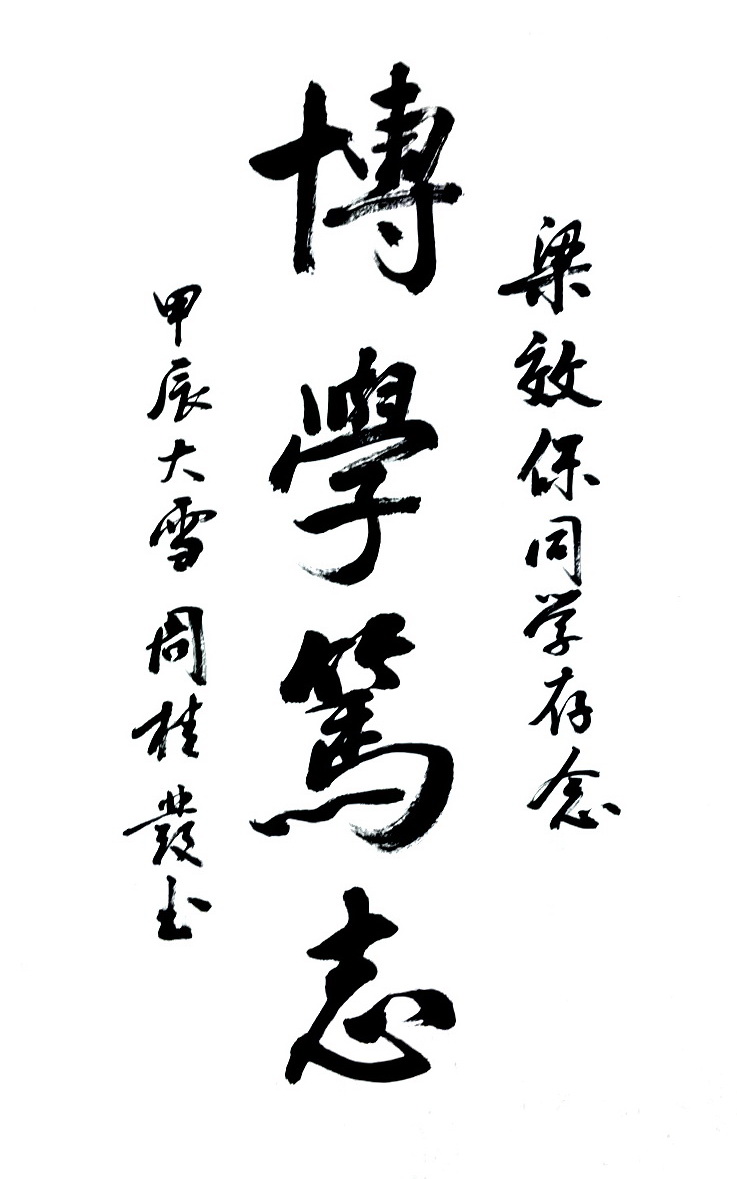 梁效保同学存念
博學篤志
甲辰大雪 周桂發书